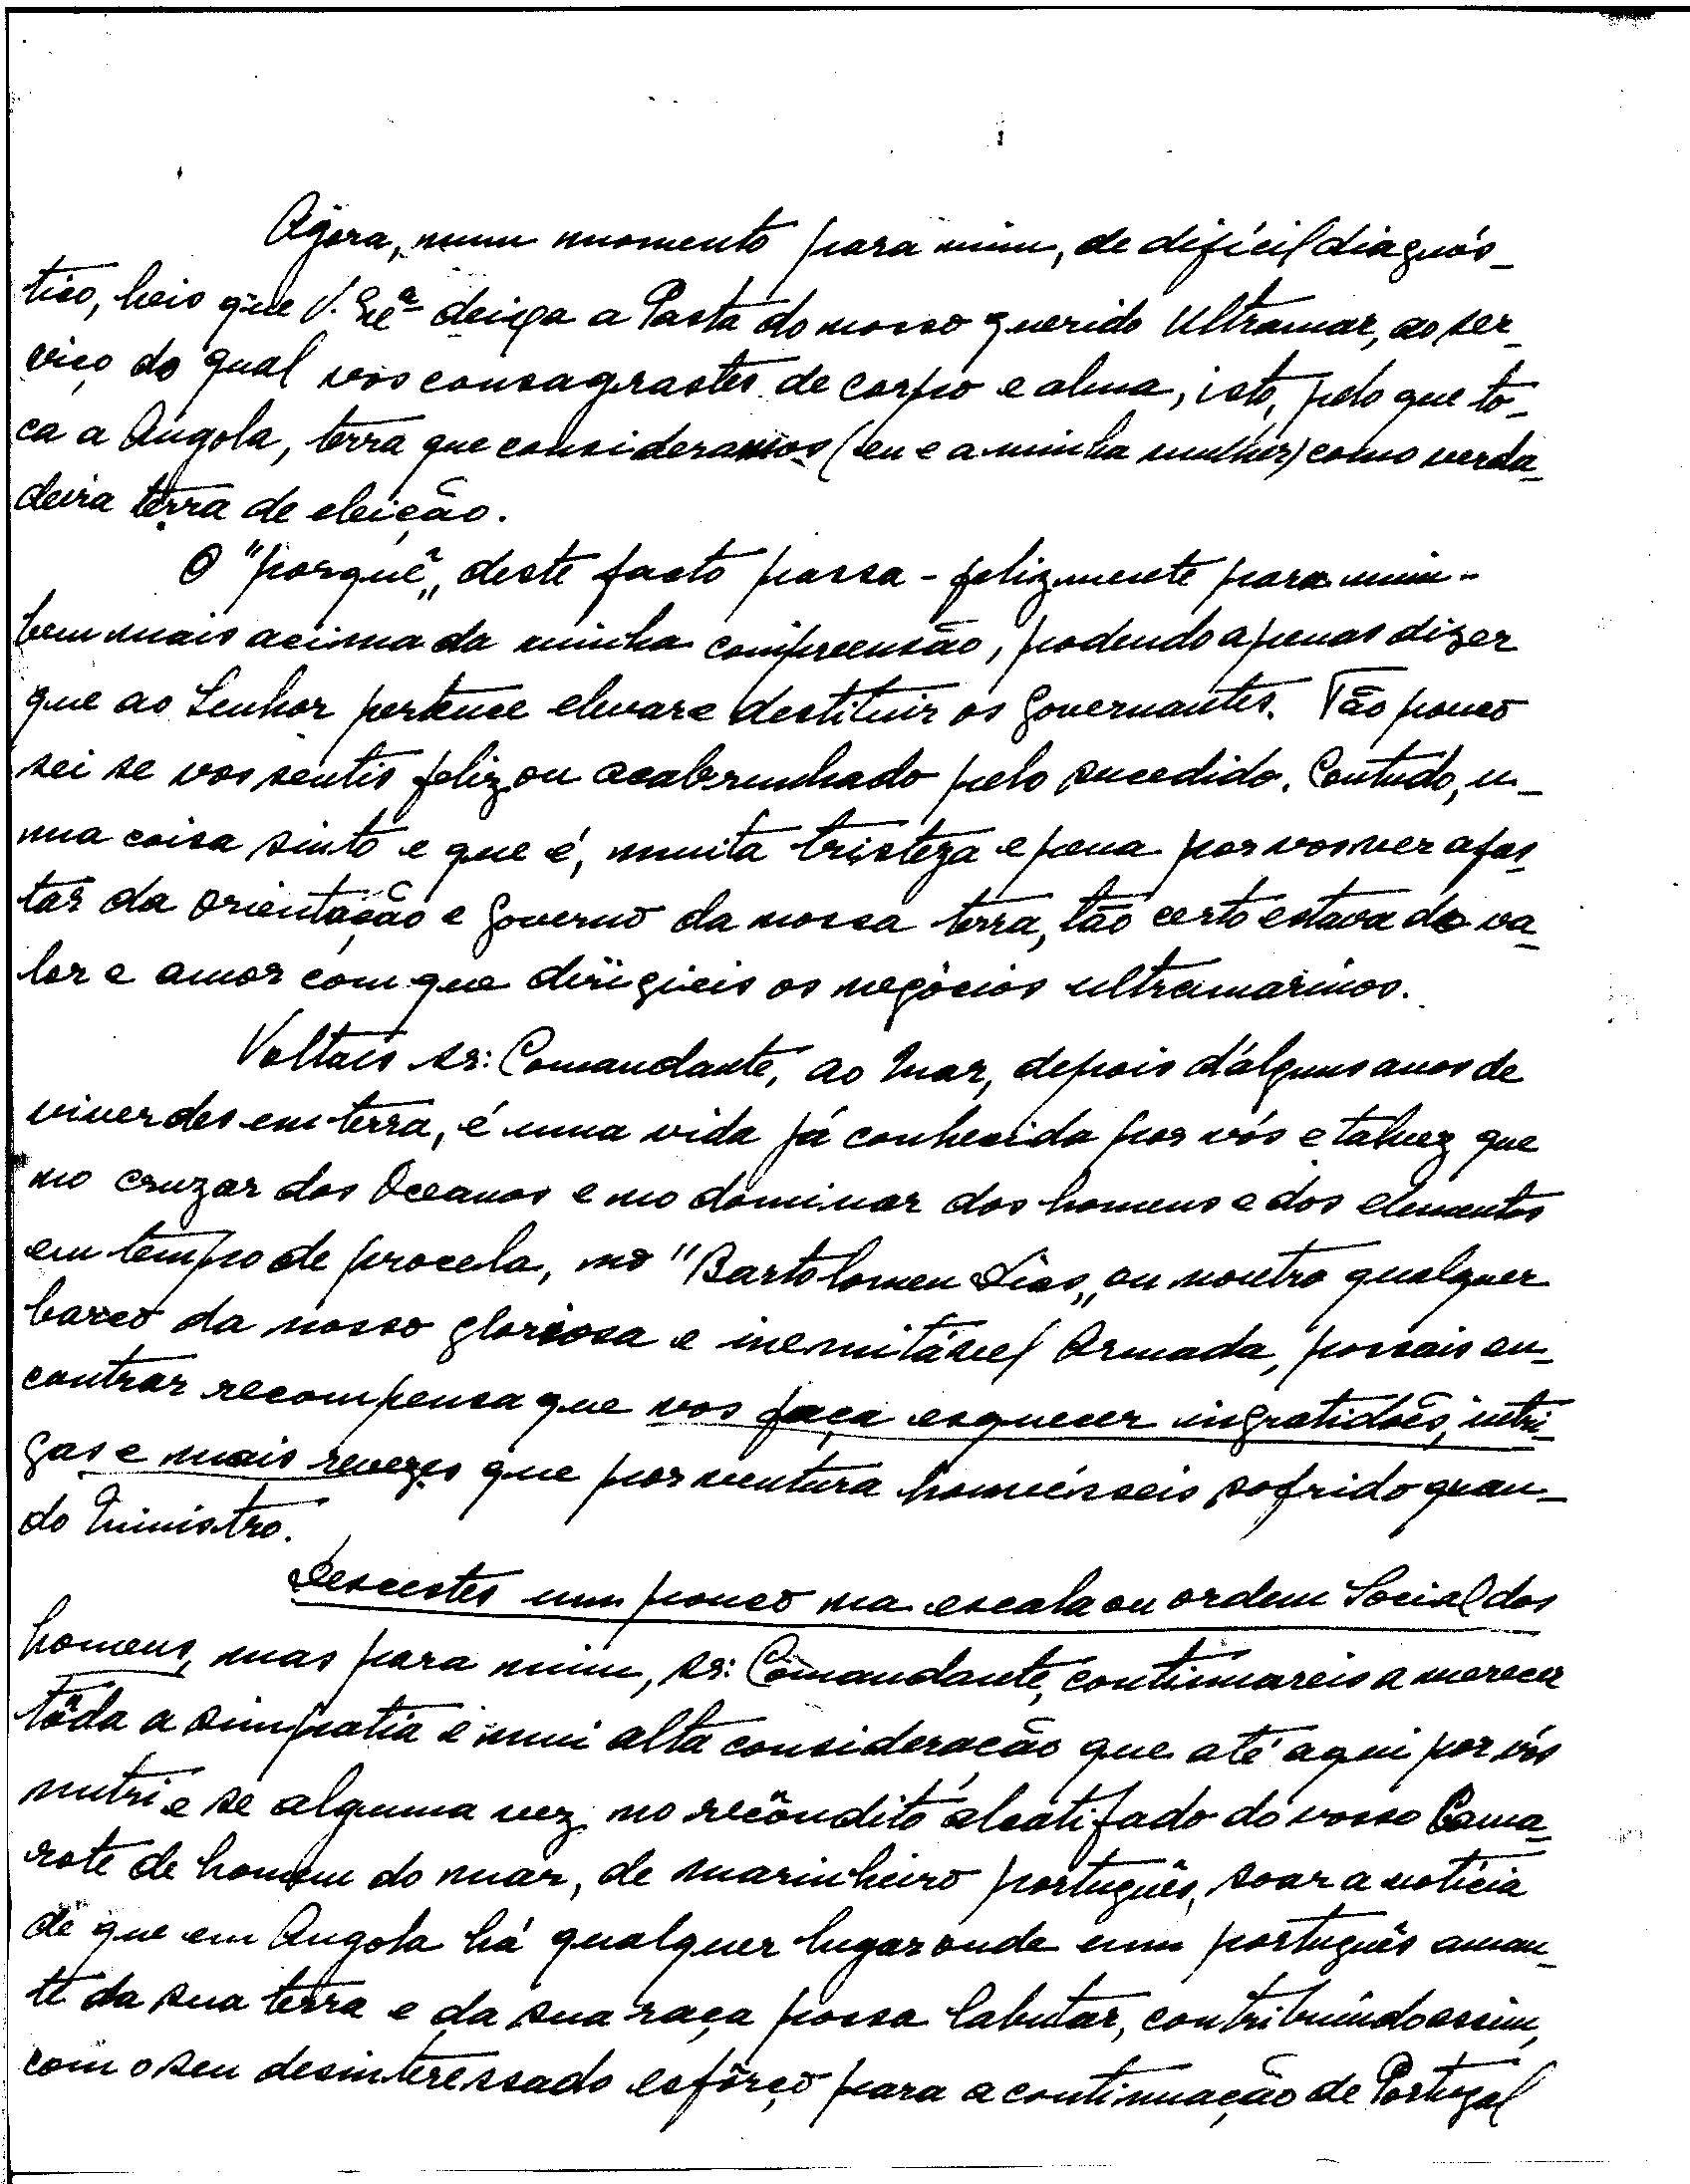 Agora, num momento para mim, de difícil diagnós-
tico, heis que V. Exª deixa a Pasta do nosso querido Ultramar, ao ser-
viço do qual vos consagrastes de corpo e alma, isto, pelo que to-
ca a Angola, terra que consideramos (eu e a minha mulher) como verda-
deira terra de eleição.
O "porquê„ deste facto passa - felizmente para mim -
bem mais acima da minha compreensão, podendo apenas dizer
que ao Senhor pertence elevar e destituir os Governantes. Tão pouco
sei se vos sentis feliz ou acabrunhado pelo sucedido. Contudo, u-
ma coisa sinto e que é, muita tristeza e pena por vos ver afas-
tar da orientação e Governo da nossa terra, tão certo estava do va-
lor e amor com que dirigieis os negócios ultramarinos.
Voltais sr: Comandante, ao Mar, depois d'alguns anos de
viverdes em terra, é uma vida já conhecida por vós e talvez que
no cruzar dos Oceanos e no dominar dos homens e dos elementos
em tempo de procela, no "Bartolomeu Dias„ ou noutro qualquer
barco da nosso gloriosa e inemitável Armada, possais en-
contrar recompensa que vos faça esquecer ingratidões, intri-
gas e mais revezes que porventura houvésseis sofrido quan-
do Ministro.
Descestes um pouco na escala ou ordem Social dos
homens, mas para mim, sr: Comandante, continuareis a merecer
tôda a simpatia e mui alta consideração que até aqui por vós
nutri e se alguma vez no recôndito alcatifado do vosso Cama-
rote de homem do mar, de marinheiro português, soar a notícia
de que em Angola há qualquer lugar onde um português aman-
te da sua terra e da sua raça possa labutar, contribuíndo assim,
com o seu desinteressado esfôrço para a continuação de Portugal